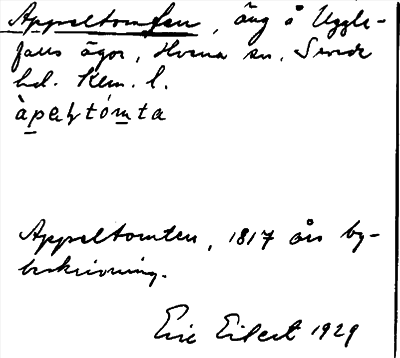 Appeltomten, äng å Uggle-
falls ägor, Horna sn. Snvde
hd. Klm. l.
àpaltómta
Appeltomten, 1817 års by-
beskrivning.
Eric Eilert 1929